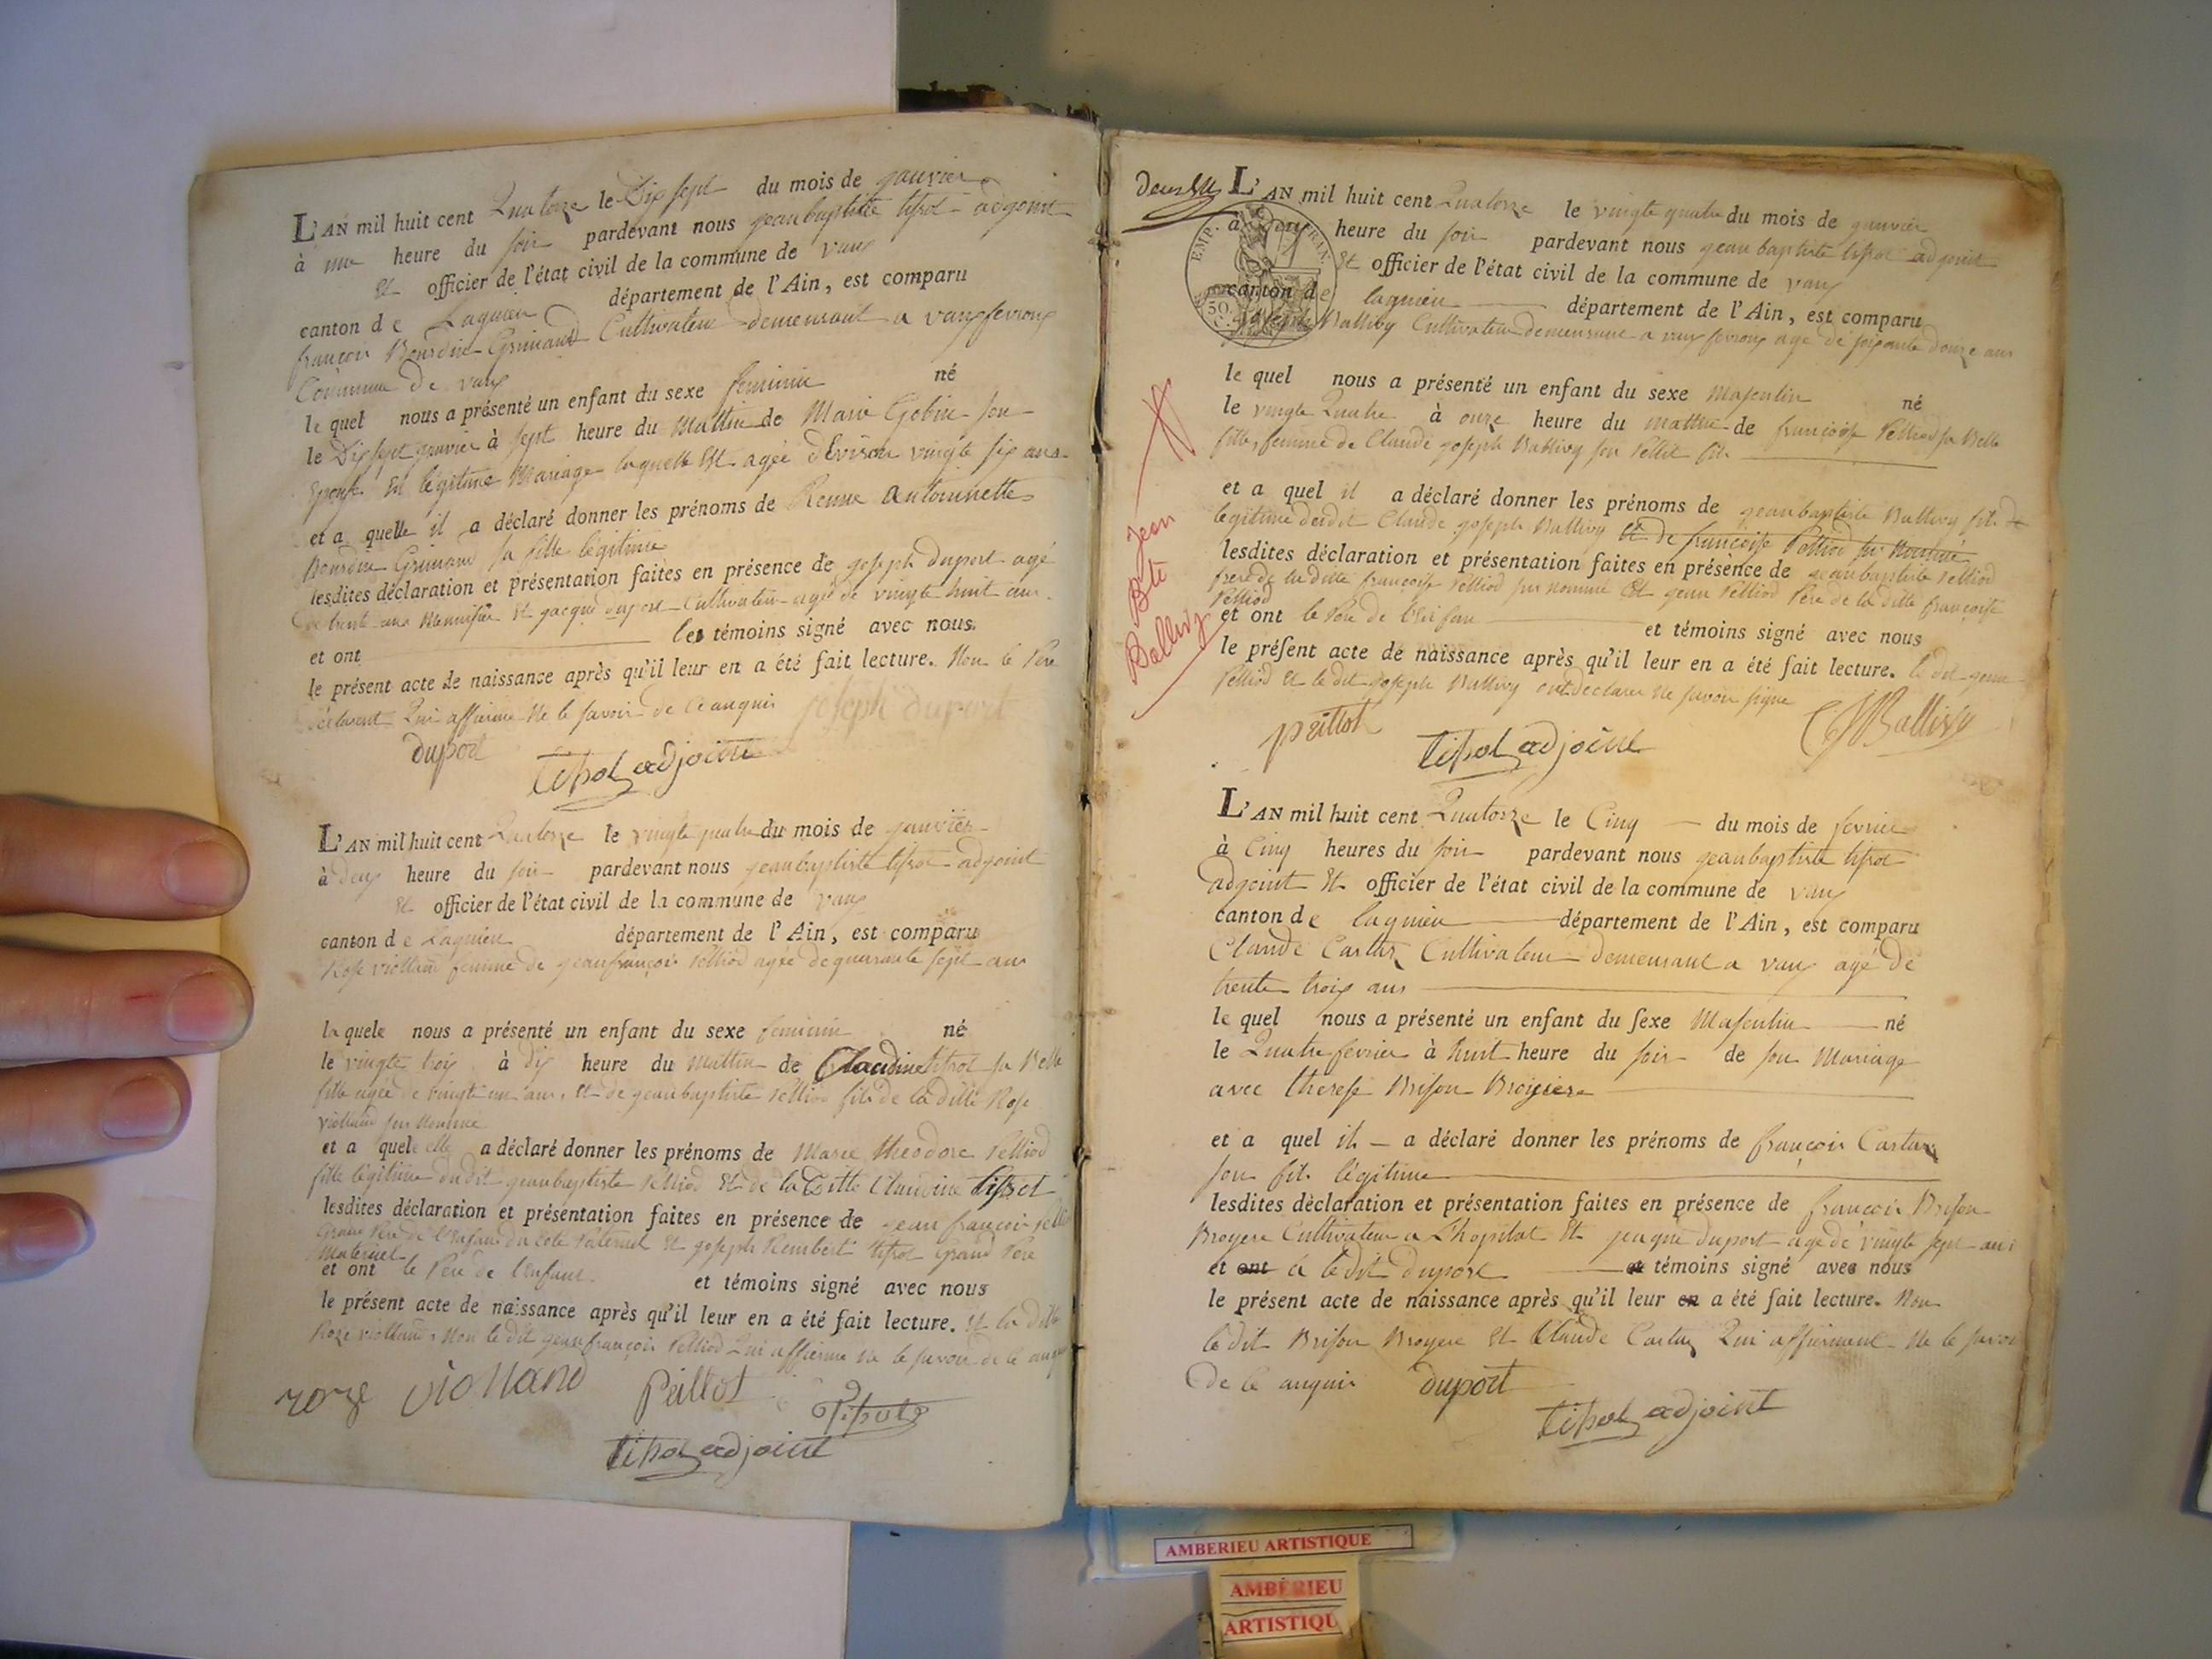 L'AN mil huit cent Quatorze le Dix sept du mois de janvier
à une heure du soir pardevant nous jean baptiste tissot adjoint
et officier de l'état civil de la commune de vaux
canton de Lagnieu département de l'Ain, est comparu
françois Bourdin Grimaud Cultivateur demeurant a vaux fevroux
Commune de vaux
le quel nous a présenté un enfant du sexe feminin né
le Dix sept janvier à sept heure du Mattin de Marie Gobin son
Epouse En legitime Mariage laquelle Est agée d'Environ vingte six ans
et a quelle il a déclaré donner les prénoms de Renne antoinnette
Bourdin Grimaud sa fille legitime
lesdites déclaration et présentation faites en présence de joseph duport agé
de trente ans Mennisier et jacque duport Cultivateur agé de vingte huit ans
et ont les témoins signé avec nous
le présent acte de naissance après qu'il leur en a été fait lecture. Non le Pere
declarent Qui affirme Ne le savoir de Ce anquis joseph duport
duport
tissot adjoint
L'AN mil huit cent Quatorze le vingte quatre du mois de janvier
à deux heure du soir pardevant nous jean baptiste tissot adjoint
et officier de l'état civil de la commune de vaux
canton de Lagnieu département de l'Ain, est comparu
Rose violland femme de jean françois Pelliod agée de quarante sept ans
la quele nous a présenté un enfant du sexe feminin né
le vingte trois à dix heure du mattin de Claudine tissot sa Belle
fille agée de vingte un ans, et de jean baptiste Pelliod fils de la ditte Rose
violland sus nommée
et a quele elle a déclaré donner les prénoms de Marie theodore Pelliod
fille legitime dudit jean baptiste Pelliod Et de la Ditte Claudine tissot
lesdites déclaration et présentation faites en présence de jean françois Pelliod
Grand Pere de l'enfant du coté Paternel et joseph Rembert tissot Grand Pere
Maternel
et ont le Pere de l'enfant et témoins signé avec nous
le présent acte de naissance après qu'il leur en a été fait lecture. Et la ditte
Roze violland, Non le dit jean françois Pelliod Qui affirme ne le savoir de le anquis
roze violland Peillot
tissot adjoint
Deux
L'AN mil huit cent Quatorze le vingte quatre du mois de janvier
à deux heure du soir pardevant nous jean baptiste tissot adjoint
Et officier de l'état civil de la commune de vaux
canton de lagnieu département de l'Ain, est comparu
joseph Ballivy Cultivateur demeurant a vaux fevroux agé de soixante douze ans
EMP. FRAN.
50
le quel nous a présenté un enfant du sexe Masculin né
le vingte Quatre à onze heure du mattin de françoise Pelliod sa Belle
fille, femme de Claude joseph Ballivy son Pettit fils
Jean
Bte
Ballivy
et a quel il a déclaré donner les prénoms de jean baptiste Ballivy fils
legitime dudit Claude joseph Ballivy et de françoise Pelliod sus nommé
lesdites déclaration et présentation faites en présence de jean baptiste Pelliod
frere de la ditte françoise Pelliod sus nommé Et jean Pelliod Pere de la ditte françoise
Pelliod
et ont le Pere de l'enfant et témoins signé avec nous
le présent acte de naissance après qu'il leur en a été fait lecture. le dit jean
Pelliod et le dit joseph Ballivy ont declarer Ne savoir signe
peillot CJBallivy
tissot adjoint
L'AN mil huit cent Quatorze le Cinq du mois de fevrier
à Cinq heures du soir pardevant nous jean baptiste tissot
adjoint Et officier de l'état civil de la commune de vaux
canton de lagnieu département de l'Ain, est comparu
Claude Castaz Cultivateur demeurant a vaux agé de
trente trois ans
le quel nous a présenté un enfant du sexe Masculin né
le Quatre fevrier à huit heure du soir de son Mariage
avec therese Brison Broyere
et a quel il a déclaré donner les prénoms de françois Castaz
son fils légitime
lesdites déclaration et présentation faites en présence de françois Brison
Broyere Cultivateur a L'hopital Et jacque duport agé de vingte sept ans
et ont a le dit duport et témoins signé avec nous
le présent acte de naissance après qu'il leur en a été fait lecture. Non
le dit Brison Broyere Et Claude Castaz Qui affirmant Ne le savoir
de ce anquis duport
tissot adjoint
AMBERIEU ARTISTIQUE
AMBERIEU
ARTISTIQU